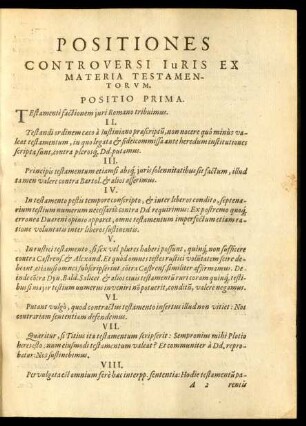 POSITIONES
CONTROVERSI IuRIS EX
MATERIA TESTAMEN-
TORVM.
POSITIO PRIMA.
TEstamenti factionem juri Romano tribuimus.
II.
Testandi ordinem eatenus à Iustiniano præscriptū, non nocere quò minùs va-
leat testamentum, in quo legata & fideicommissa ante heredum institutiones
scripta sunt, contra plerosq; Dd. putamus.
III.
Principis testamentum etiamsi absq; juris solennitatibus sit factum, illud
tamen valere contra Bartol. & alios asserimus.
IV.
In testamento pestis tempore conscripto, & inter liberos condito, septena-
rium testium numerum necessariò contra Dd. requirimus: Ex postremo quoq;
errone Duareni opinio apparet, omne testamentum imperfectum etiam ra-
tione voluntatis inter liberos sustinentis.
V.
In rustici testamento, si sex vel plures haberi possunt, quinq; non sufficere
contra Castrens. & Alexand. Et quòd omnes testes rustici voluntatem scire de-
beant, etiamsi omnes subscripserint, citra Castrens. similiter affirmamus. De-
inde cōtra Dyn. Bald. Salicet. & alios eum testamentū rure coram quinq; testi-
bus major testium numerus conveniri nō poterit, conditū, valere negamus.
VI.
Putant vulgò, quod contractus testamento insertus illud non vitiet: Nos
contrariam sententiam defendimus.
VII.
Quæritur, si Titius ita testamentum scripserit: Sempronius mihi Plotio
heres esto, num ejusmodi testamentum valeat? Et communiter à Dd. repro-
batur: Nos sustinebimus.
VIII.
Pervulgata est omnium ferè hac interpp. sententia: Hodie testamentū pa-
A 2 rentis